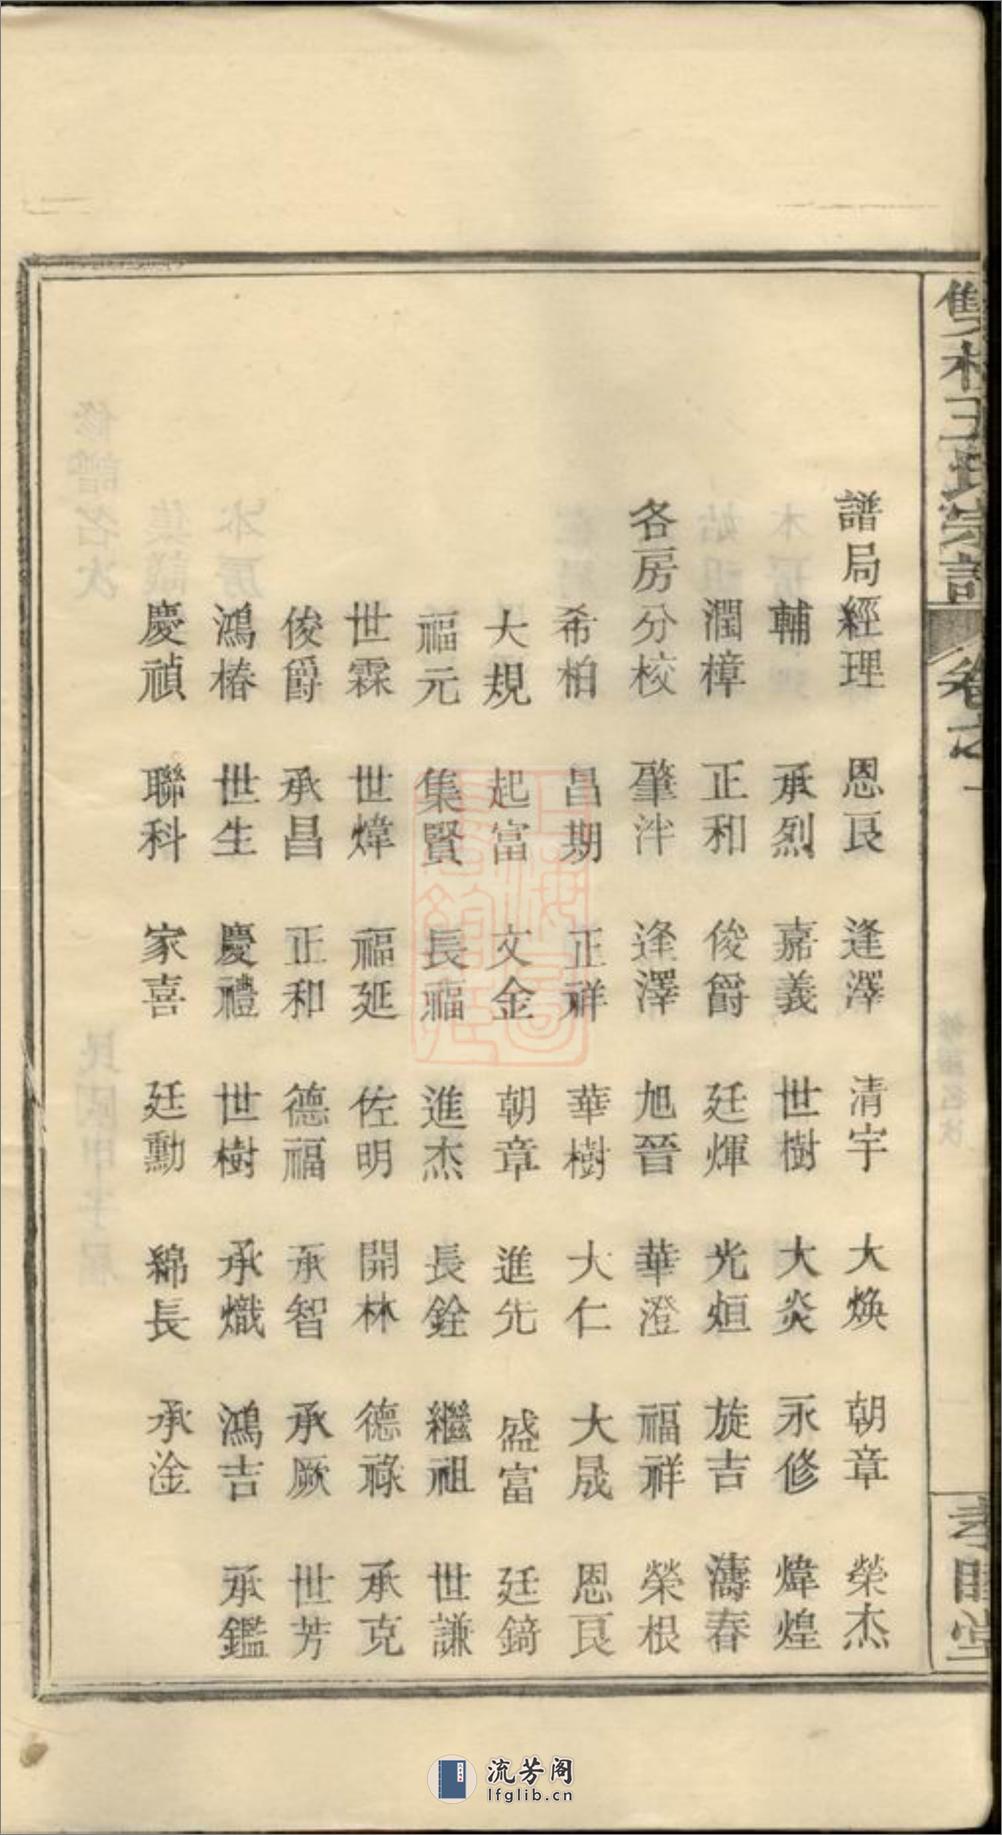 譜局經理 恩良 逢澤 清宇 大煥 朝章 榮杰
輔 承烈 嘉義 世樹 大炎 永修 煒煌
潤樟 正和 俊爵 廷煇 光烜 旋吉 濤春
各房分校 肇泮 逢澤 旭晉 華澄 福祥 榮根
希柏 昌期 正祥 華樹 大仁 大晟 恩良
大規 起富 文金 朝章 進先 盛富 廷錡
福元 集賢 長福 進杰 長銓 繼祖 世謙
世霖 世煒 福延 佐明 開林 德祿 承克
俊爵 承昌 正和 德福 承智 承厥 世芳
鴻椿 世生 慶禮 世樹 承熾 鴻吉 承鑑
慶禎 聯科 家喜 廷勳 綿長 承淦
王氏宗譜
卷之一
孝睦堂
流芳阁
lfglib.cn